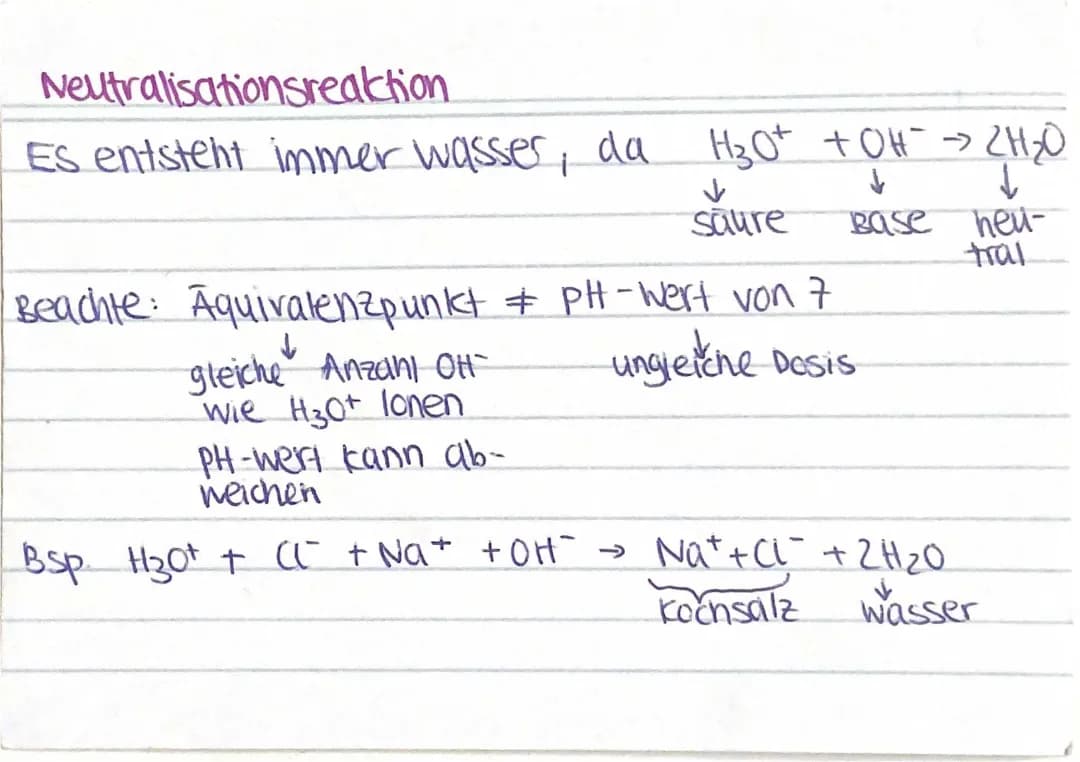 Neutralisationsreaktion
Es entsteht immer wasser, da H₃O⁺ + OH⁻ → 2H₂O
↓ ↓ ↓
säure Base neu-
tral
Beachte: Äquivalenzpunkt ≠ pH-Wert von 7
↓ ↓
gleiche Anzahl OH⁻ ungleiche Dosis
wie H₃O⁺ Ionen
pH-wert kann ab-
weichen
Bsp. H₃O⁺ + Cl⁻ + Na⁺ + OH⁻ → Na⁺ + Cl⁻ + 2H₂O
↓
Kochsalz wasser